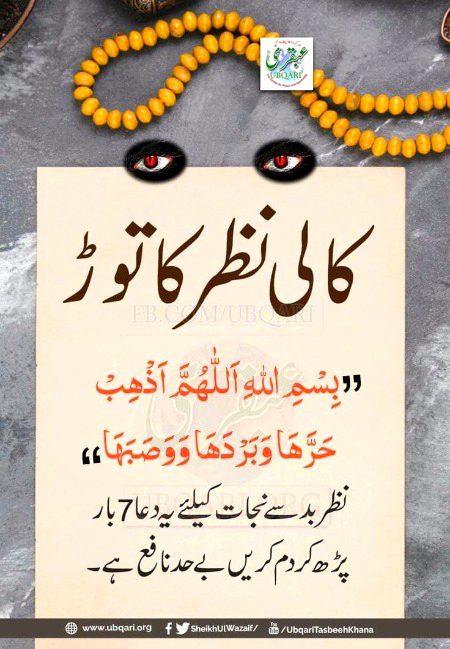 عبقری
UBQARI
کالی نظر کا توڑ
FB.COM/UBQARI
”بِسْمِ اللهِ اَللّٰهُمَّ اَذْهِبْ
حَرَّهَا وَبَرْدَهَا وَوَصَبَهَا“
UBQARI.ORG
نظر بد سے نجات کیلئے یہ دعا 7 بار
پڑھ کر دم کریں بے حد نافع ہے۔
www.ubqari.org / SheikhUlWazaif/ /UbqariTasbeehKhana